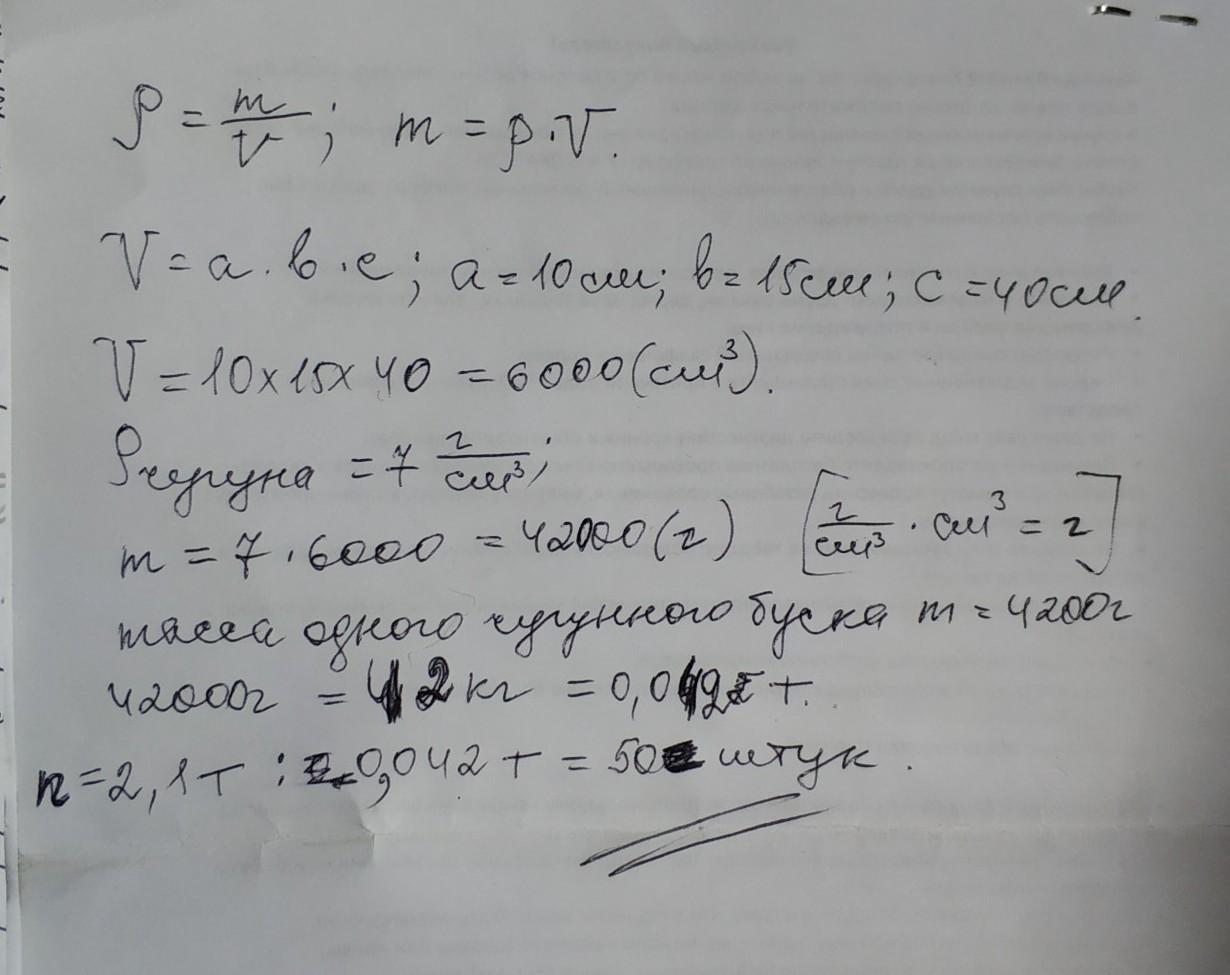 ρ = m/V; m = ρ·V.
V = a·b·c; a = 10 см; b = 15 см; c = 40 см.
V = 10 x 15 x 40 = 6000 (см³).
ρ чугуна = 7 г/см³;
m = 7 · 6000 = 42000 (г) [г/см³ · см³ = г]
масса одного чугунного буска m = 4200г
42000г = 42 кг = 0,042 т.
n = 2,1 т : 0,042 т = 50 штук.